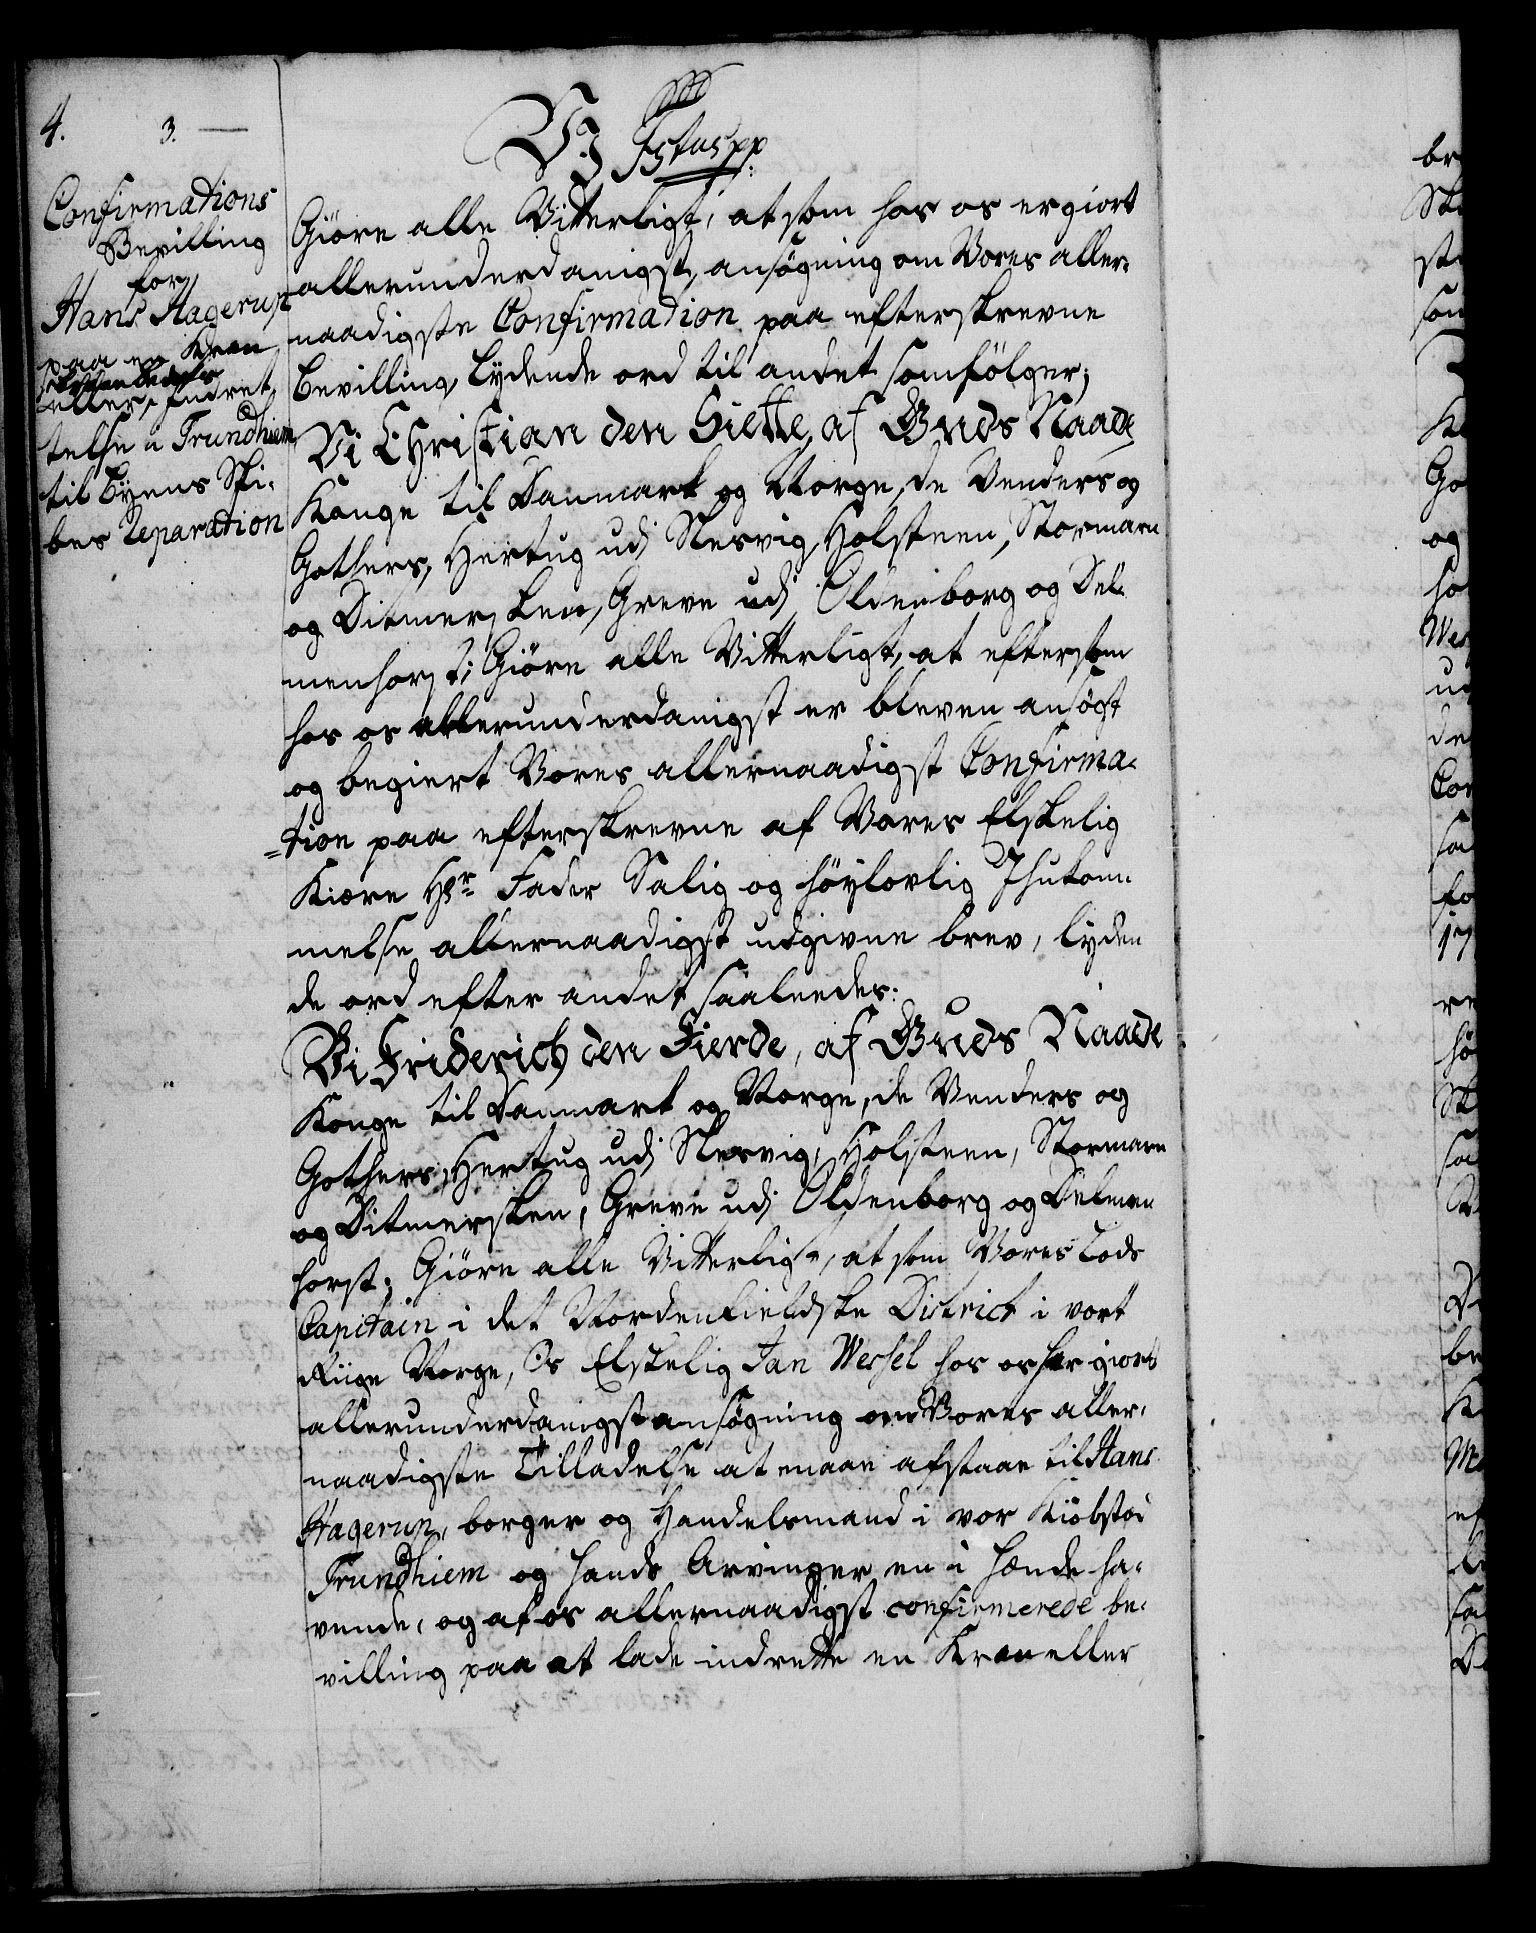 4. 3.
Confirmations
Bevilling
for
Hans Hagerup
paa en Kran
eller Indret,
telse i Trundhiem
til Byens Ski,
bes Reparation
Vj F5tus pp
Giöre alle Vitterligt, at som hos os er giort
allerunderdanigst ansögning om Vores aller,
naadigste Confirmation paa efterskrevne
bevilling, lydende ord til andet som fölger;
Vi Christian den Siette, af Guds Naade
Konge til Danmark og Norge, de Venders og
Gothers, Hertug udj Slesvig, Holsteen, Stormarn
og Ditmersken, Greve udj Oldenborg og Del,
menhorst; Giöre alle Vitterligt, at eftersom
hos os allerunderdanigst er bleven ansögt
og begiert Vores allernaadigst Confirma,
=tion paa efterskrevne af Vores Elskelig
Kiære Hr Fader Salig og höylovlig Ihukom,
melse allernaadigst udgivne brev, lyden
de ord efter andet saaleedes:
Vi Friderich den Fierde, af Guds Naade
Konge til Danmark og Norge, de Venders og
Gothers, Hertug udj Slesvig, Holsteen, Stormarn
og Ditmersken, Greve udj Oldenborg og Delmen
horst; Giöre alle Vitterligt, at som Vores Lods
Capitain i det Nordenfieldske District i vort
Riige Norge, Os Elskelig Jan Wessel hos os har giort
allerunderdanigst ansögning om Vores aller,
naadigste Tilladelse at maae afstaae til Hans
Hagerup, borger og Handelsmand i vor Kiöbstæd
Trundhiem og hands Arvinger en i hænde ha,
vende, og af os allernaadigst confirmerede be,
villing paa at lade indrette en Kran eller